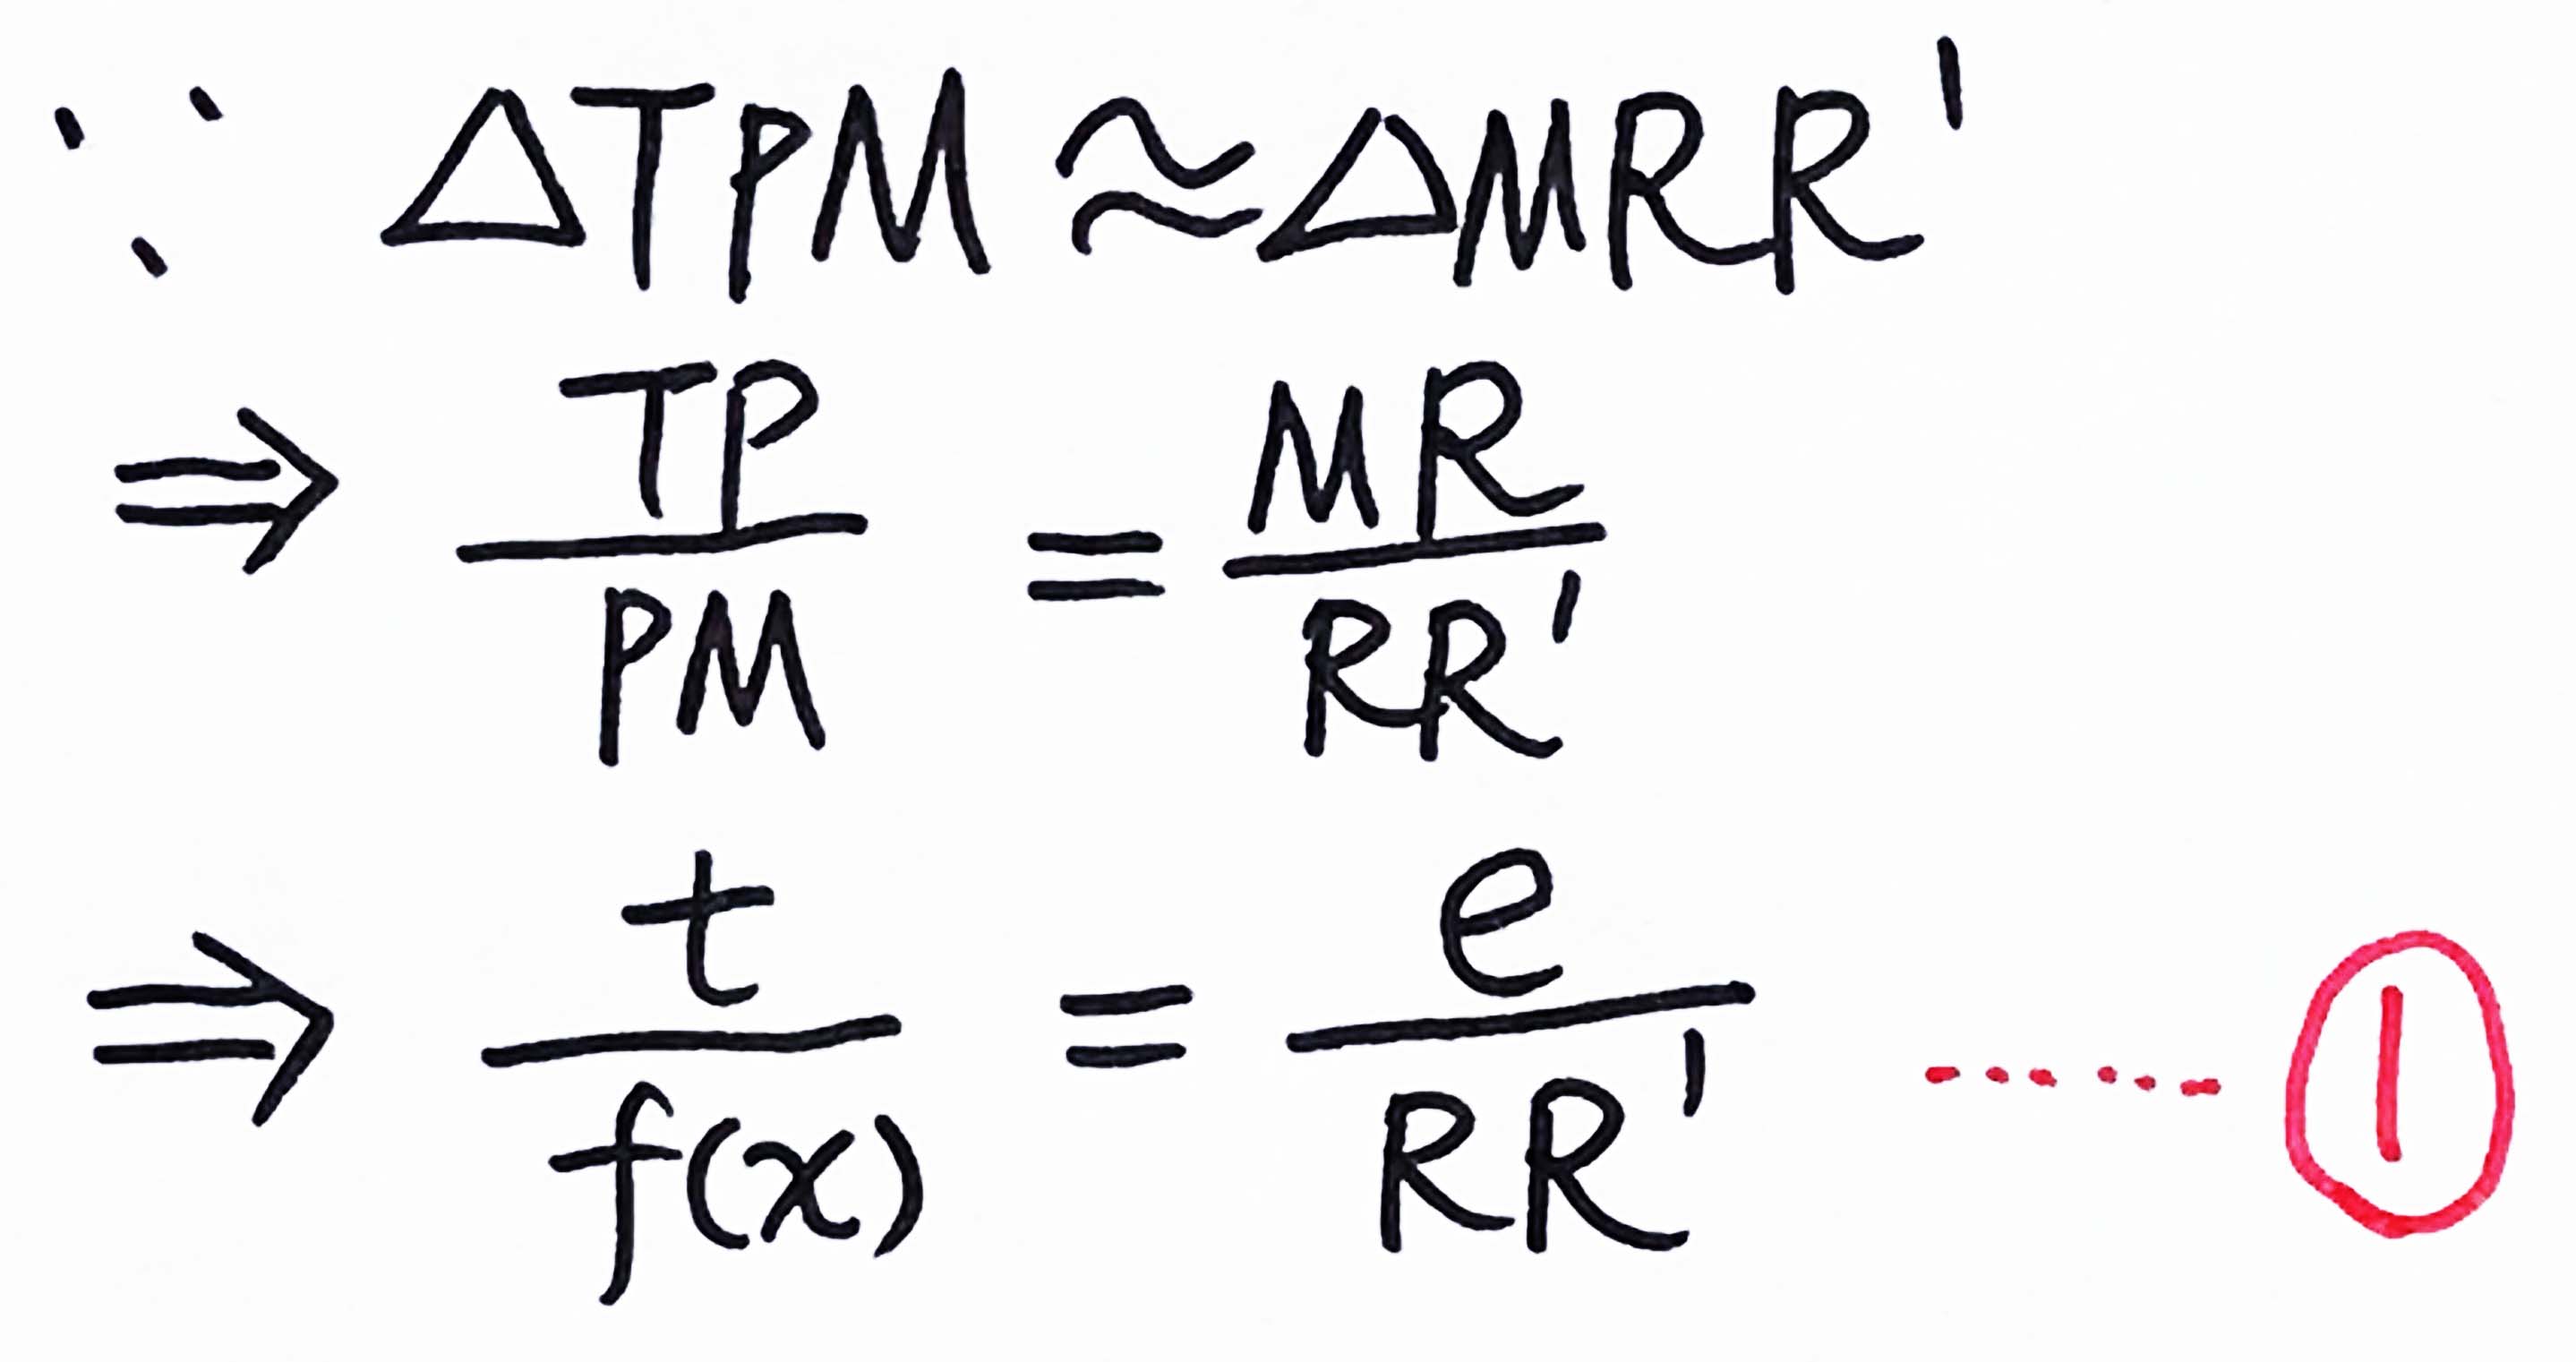 ∵ △TPM ≈ △MRR'
⇒ TP/PM = MR/RR'
⇒ t/f(x) = e/RR' ...... ①